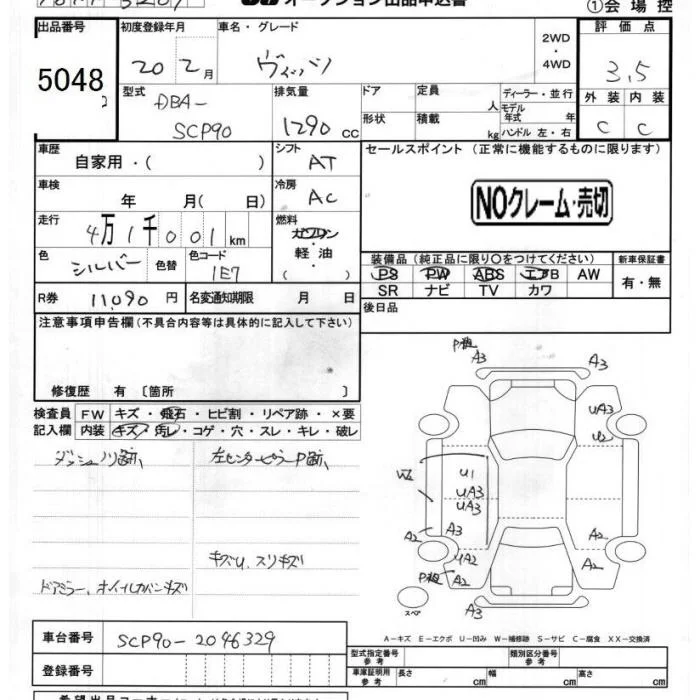 オークション出品申込書
①会場控
出品番号 初度登録年月 車名・グレード 2WD・4WD 評価点
5048 20 2月 ヴィッツ 3.5
型式 排気量 ドア 定員 人 ディーラー・並行 外装 内装
DBA-
SCP90 1290 cc 形状 積載 kg モデル年式 年 ハンドル 左・右 C C
車歴 自家用・( ) シフト AT セールスポイント (正常に機能するものに限ります)
車検 年 月( 日) 冷房 AC NOクレーム・売切
走行 4万1千001km 燃料 ガソリン・軽油・( )
色 シルバー 色替 色コード 1E7
装備品 (純正品に限り〇をつけてください) 新車保証書
PS PW ABS エアB AW 有・無
SR ナビ TV カワ
R券 11,090円 名変通知期限 月 日
後日品
注意事項申告欄(不具合内容等は具体的に記入して下さい)
修復歴 有 〔箇所 〕
検査員 FW キズ・飛石・ヒビ割・リペア跡・×要
記入欄 内装 キズ・汚レ・コゲ・穴・スレ・キレ・破レ
ダッシュノリ跡、 左センターピラーP跡、
キズU、スリキズ
ドアミラー、ホイルカバーキズ
A3
A3
UA3
U2
W2
U1
UA3
UA3
A2 A3
A2
UA2
A2
A2
A3
スペア
A-キズ E-エクボ U-凹み W-補修跡 S-サビ C-腐食 XX-交換済
車台番号 SCP90-2046329
型式指定番号 参考 類別区分番号 参考
登録番号
車庫証明用 参考 長さ cm 幅 cm 高さ cm